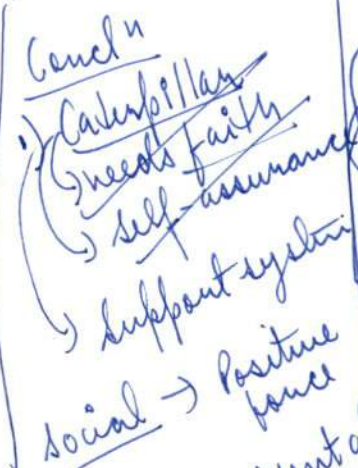 Concln
1) Caterpillar
→ needs faith
→ self-assurance
→ Support system
social → Positive
force